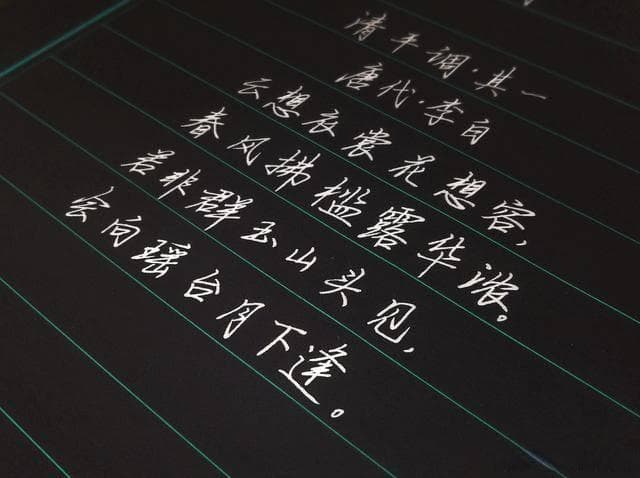 清平调·其一
唐代·李白
云想衣裳花想容,
春风拂槛露华浓。
若非群玉山头见,
会向瑶台月下逢。